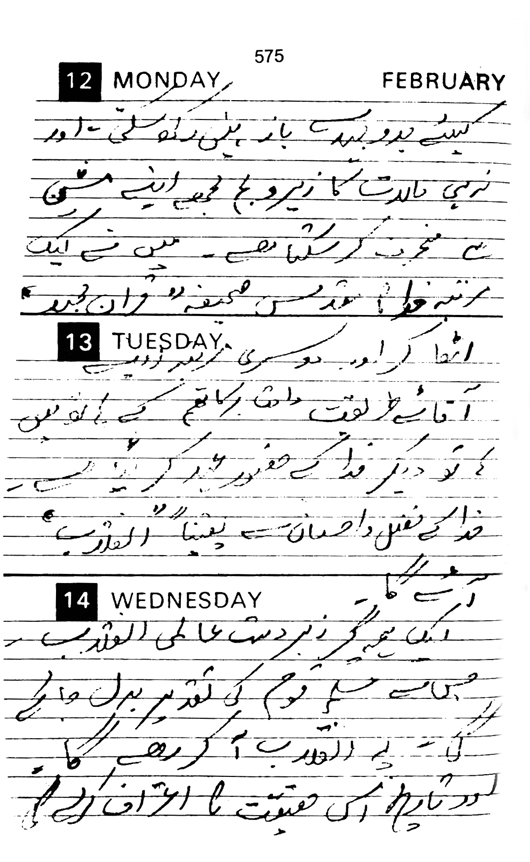 575
12 MONDAY FEBRUARY
کیلئے جدوجہد سے باز نہیں رکھ سکتی ۔ اور
نہ ہی حالات کا زیر و بم مجھے اپنے مشن
سے منحرف کر سکتا ہے ۔ میں نے ایک
مرتبہ خدا کا مقدس صحیفہ "قرآن مجید"
13 TUESDAY
اٹھا کر اور دوسری مرتبہ اپنے
آقائے طریقت دامت برکاتہم کے ہاتھ میں
ہاتھ دیکر خدا کے حضور عہد کر لیا ہے ۔
خدا کے فضل و احسان سے یقیناً "انقلاب"
آئے گا ۔
14 WEDNESDAY
ایک ہمہ گیر زبردست عالمی انقلاب ۔
جس سے مسلم قوم کی تقدیر بدل جائے
گی ۔ یہ انقلاب آ کر رہے گا ۔
اور تاریخ اس حقیقت کا اعتراف کرے گی